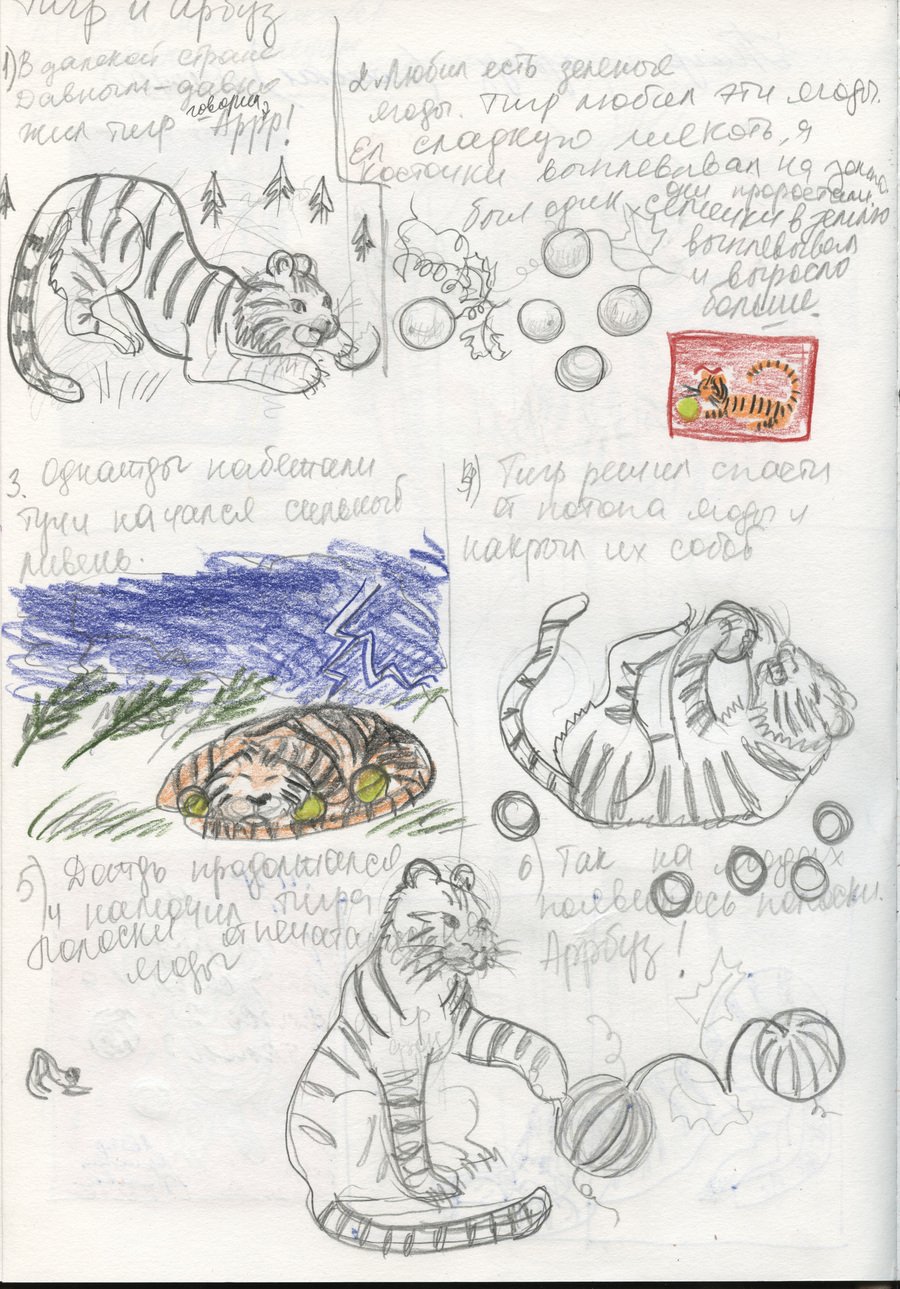 Тигр и Арбуз
1) В далекой стране
Давным-давно
жил тигр говорил Аррр!
2. Любил есть зеленые
ягоды. Тигр любил эти ягоды.
Ел сладкую мякоть, а
косточки выплевывал на землю
они проростали,
был один семечки в землю
выплевывал
и выросло
больше
3. Однажды набежали
тучи начался сильный
ливень.
4) Тигр решил спасти
от потопа ягоды и
накрыл их собой
5) Дождь продолжался
и намочил тигра
Полоски отпечата
ягоды
6) Так на ягодах
появились полоски.
Аррбуз!